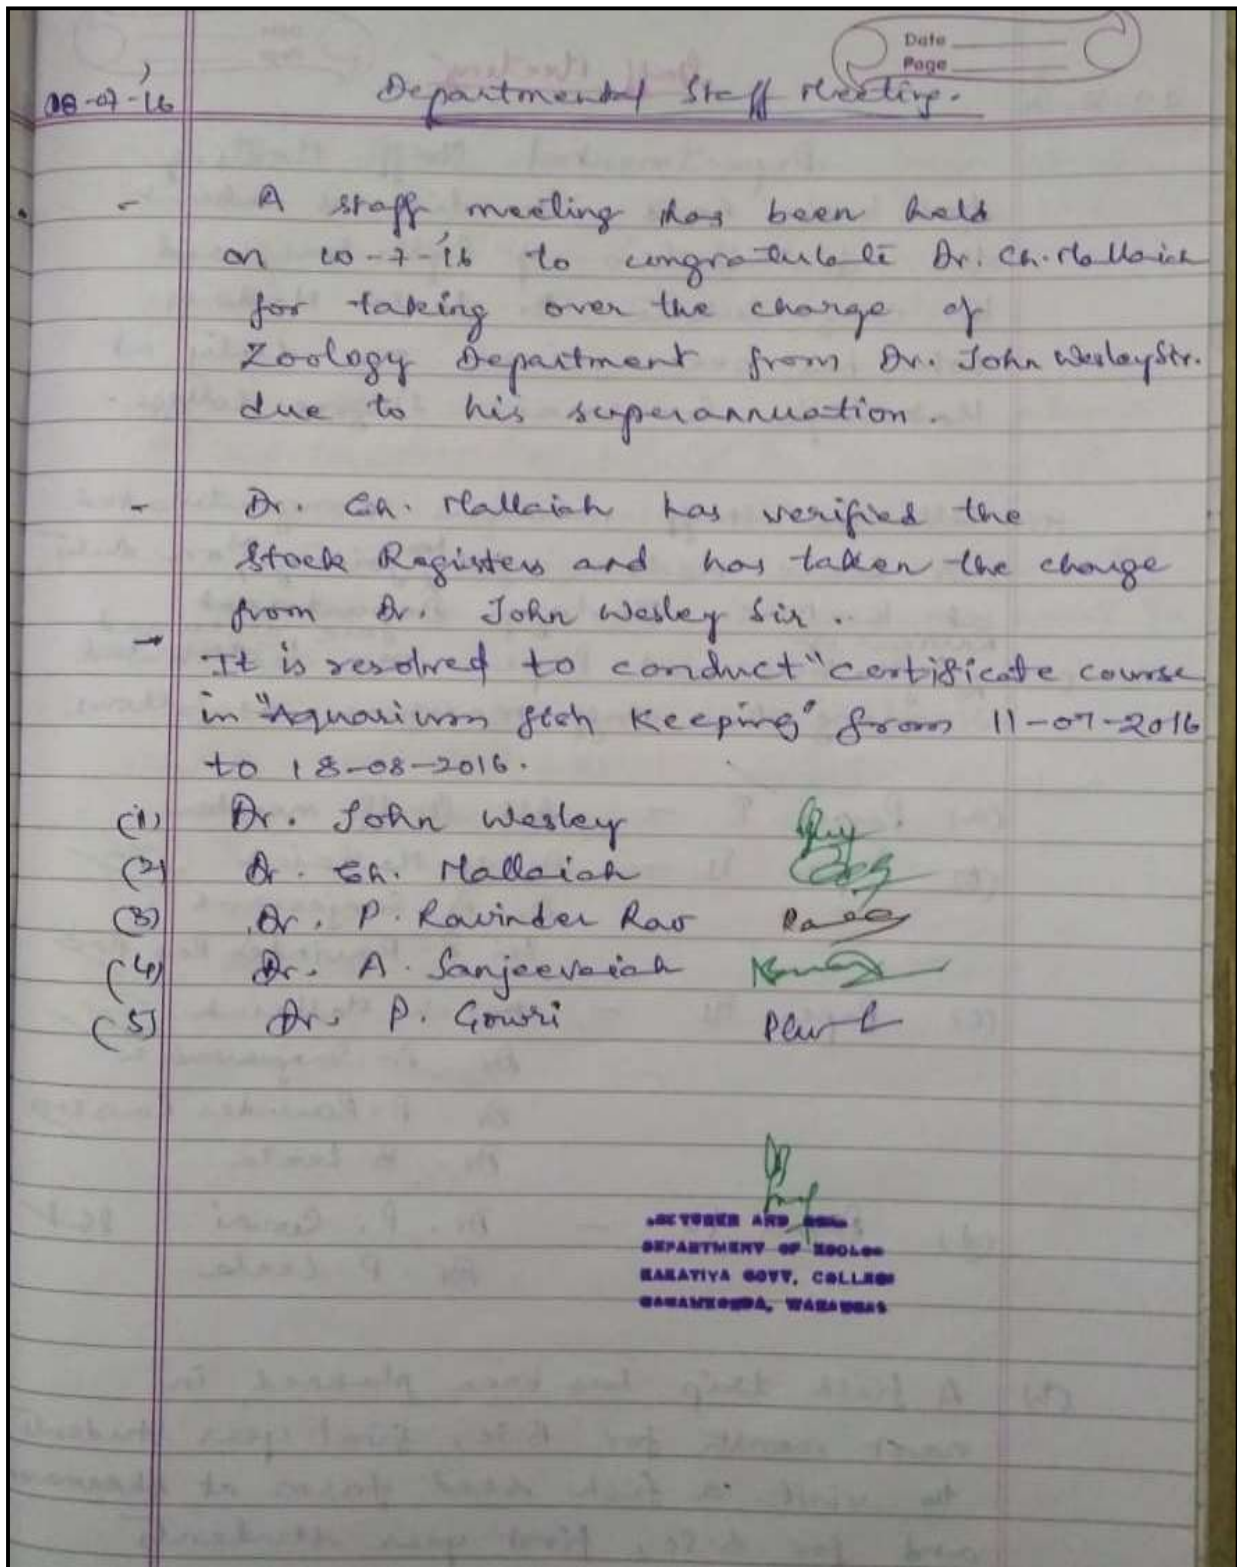 Date
Page
08-07-16 Departmental Staff Meeting.
- A staff meeting has been held
on 10-7-'16 to congratulate Dr. Ch. Mallaiah
for taking over the charge of
Zoology Department from Dr. John Wesley Sir.
due to his superannuation.
- Dr. Ch. Mallaiah has verified the
Stock Registers and has taken the charge
from Dr. John Wesley Sir.
→ It is resolved to conduct "certificate course
in "Aquarium fish Keeping" from 11-07-2016
to 18-08-2016.
(1) Dr. John Wesley
(2) Dr. Ch. Mallaiah
(3) Dr. P. Ravinder Rao
(4) Dr. A. Sanjeevaiah
(5) Dr. P. Gowri
LECTURER AND
DEPARTMENT OF ZOOLOG
KAKATIYA GOVT, COLLEGE
HANAMKONDA, WARANGAL